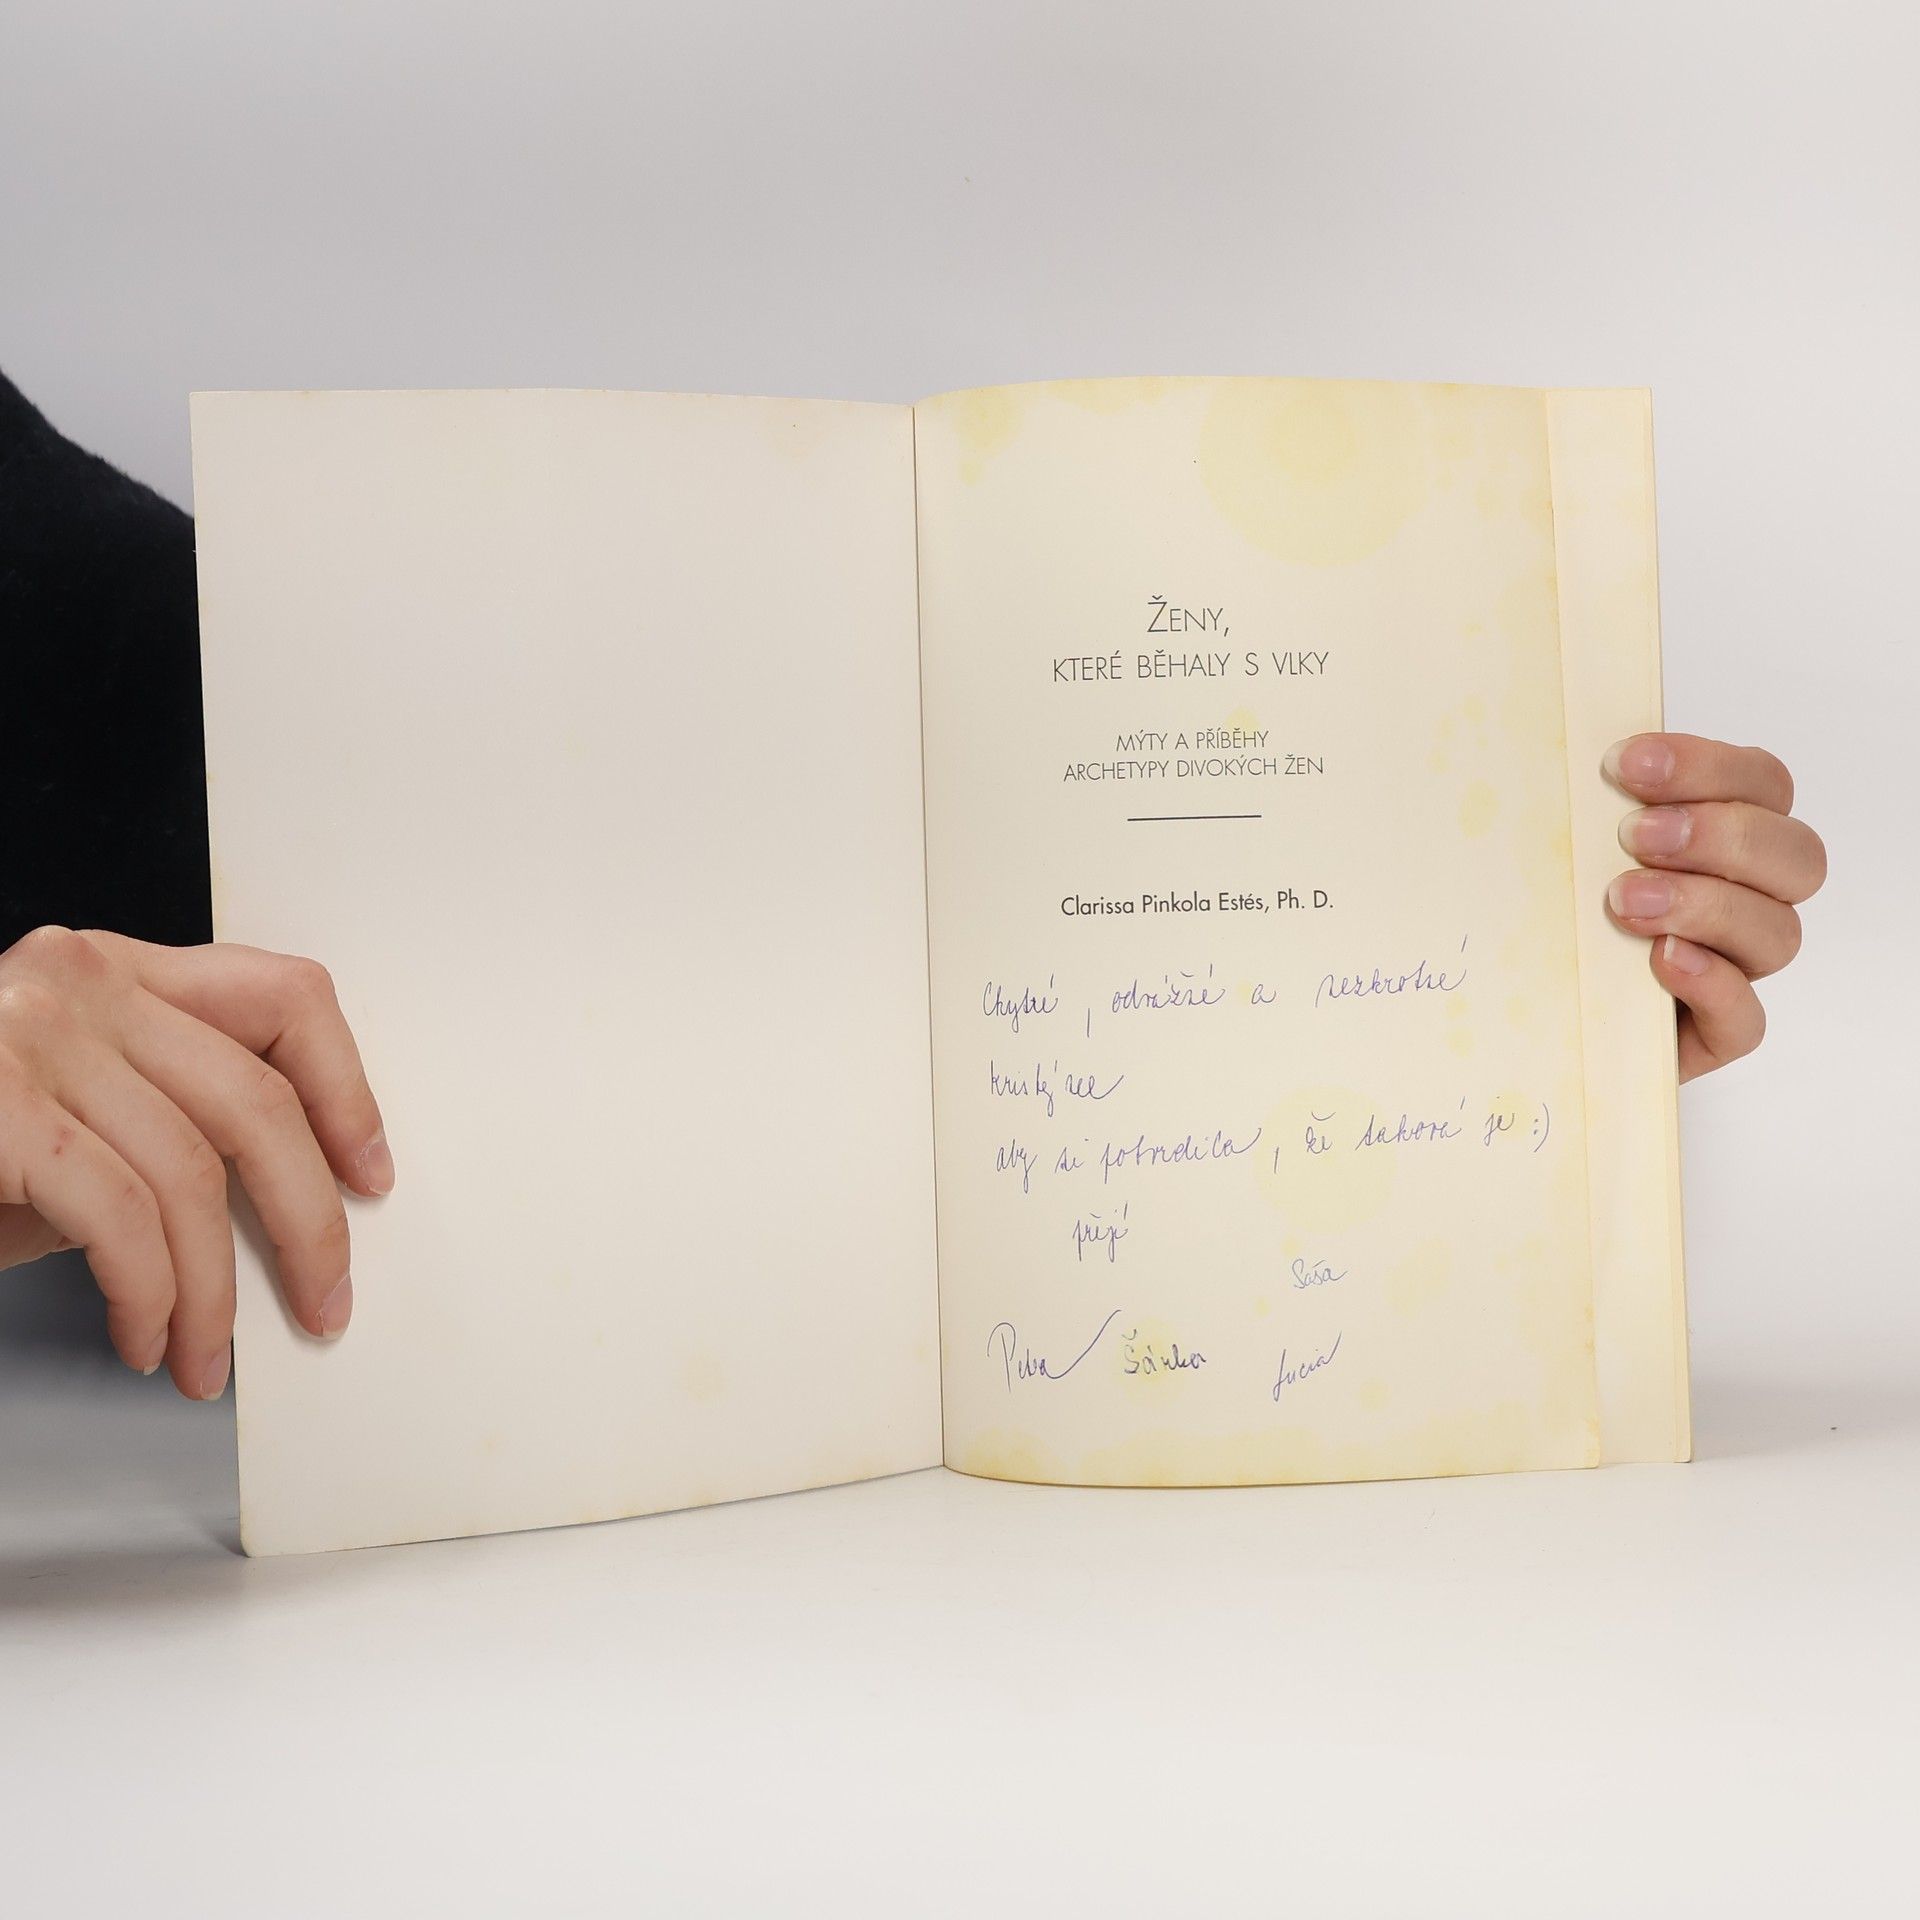 ŽENY,
KTERÉ BĚHALY S VLKY
MÝTY A PŘÍBĚHY
ARCHETYPY DIVOKÝCH ŽEN
Clarissa Pinkola Estés, Ph. D.
Chytré, odvážné a nezkrotné
Kristýnce
aby si potvrdila, že taková je :)
přejí
Saša
Petra Šárka Lucia